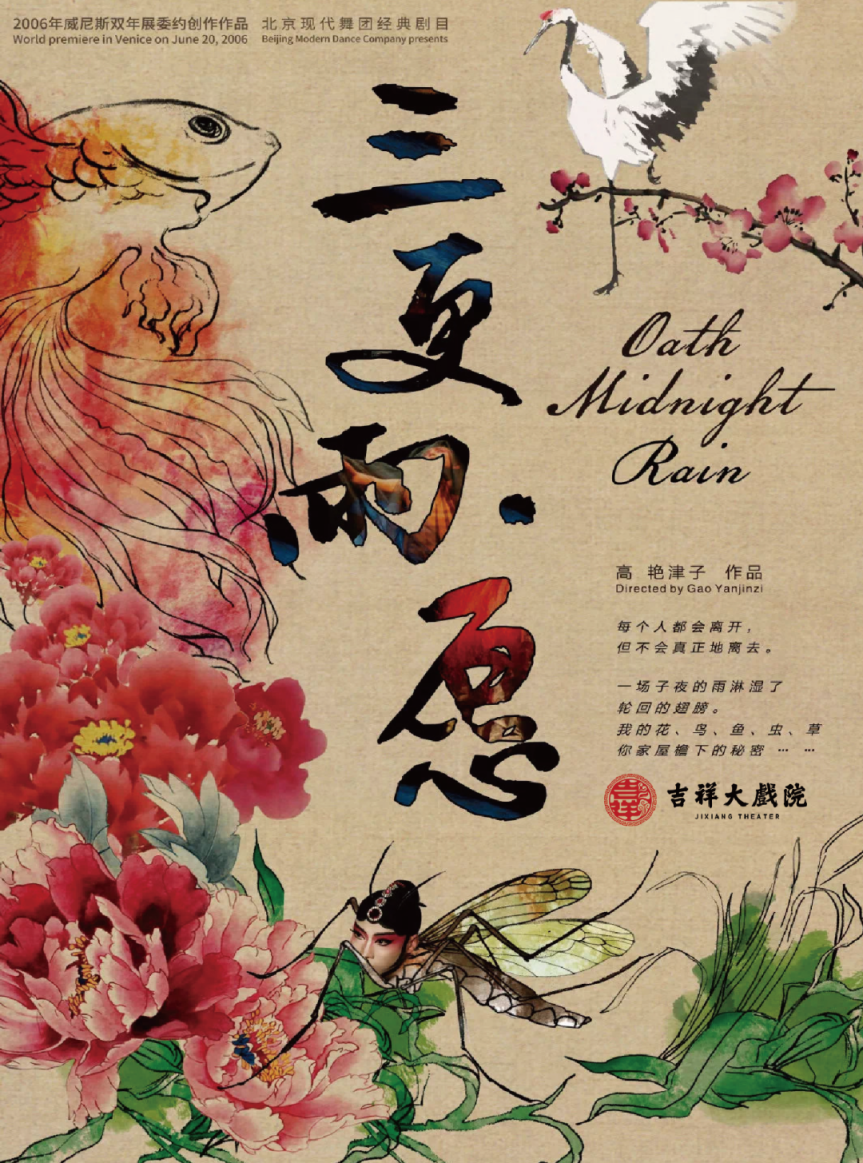 2006年威尼斯双年展委约创作作品
World premiere in Venice on June 20, 2006
北京现代舞团经典剧目
Beijing Modern Dance Company presents
三更雨·愿
Oath
Midnight
Rain
高 艳津子 作品
Directed by Gao Yanjinzi
每个人都会离开，
但不会真正地离去。
一场子夜的雨淋湿了
轮回的翅膀。
我的花、鸟、鱼、虫、草
你家屋檐下的秘密 … …
吉祥
吉祥大戲院
JIXIANG THEATER